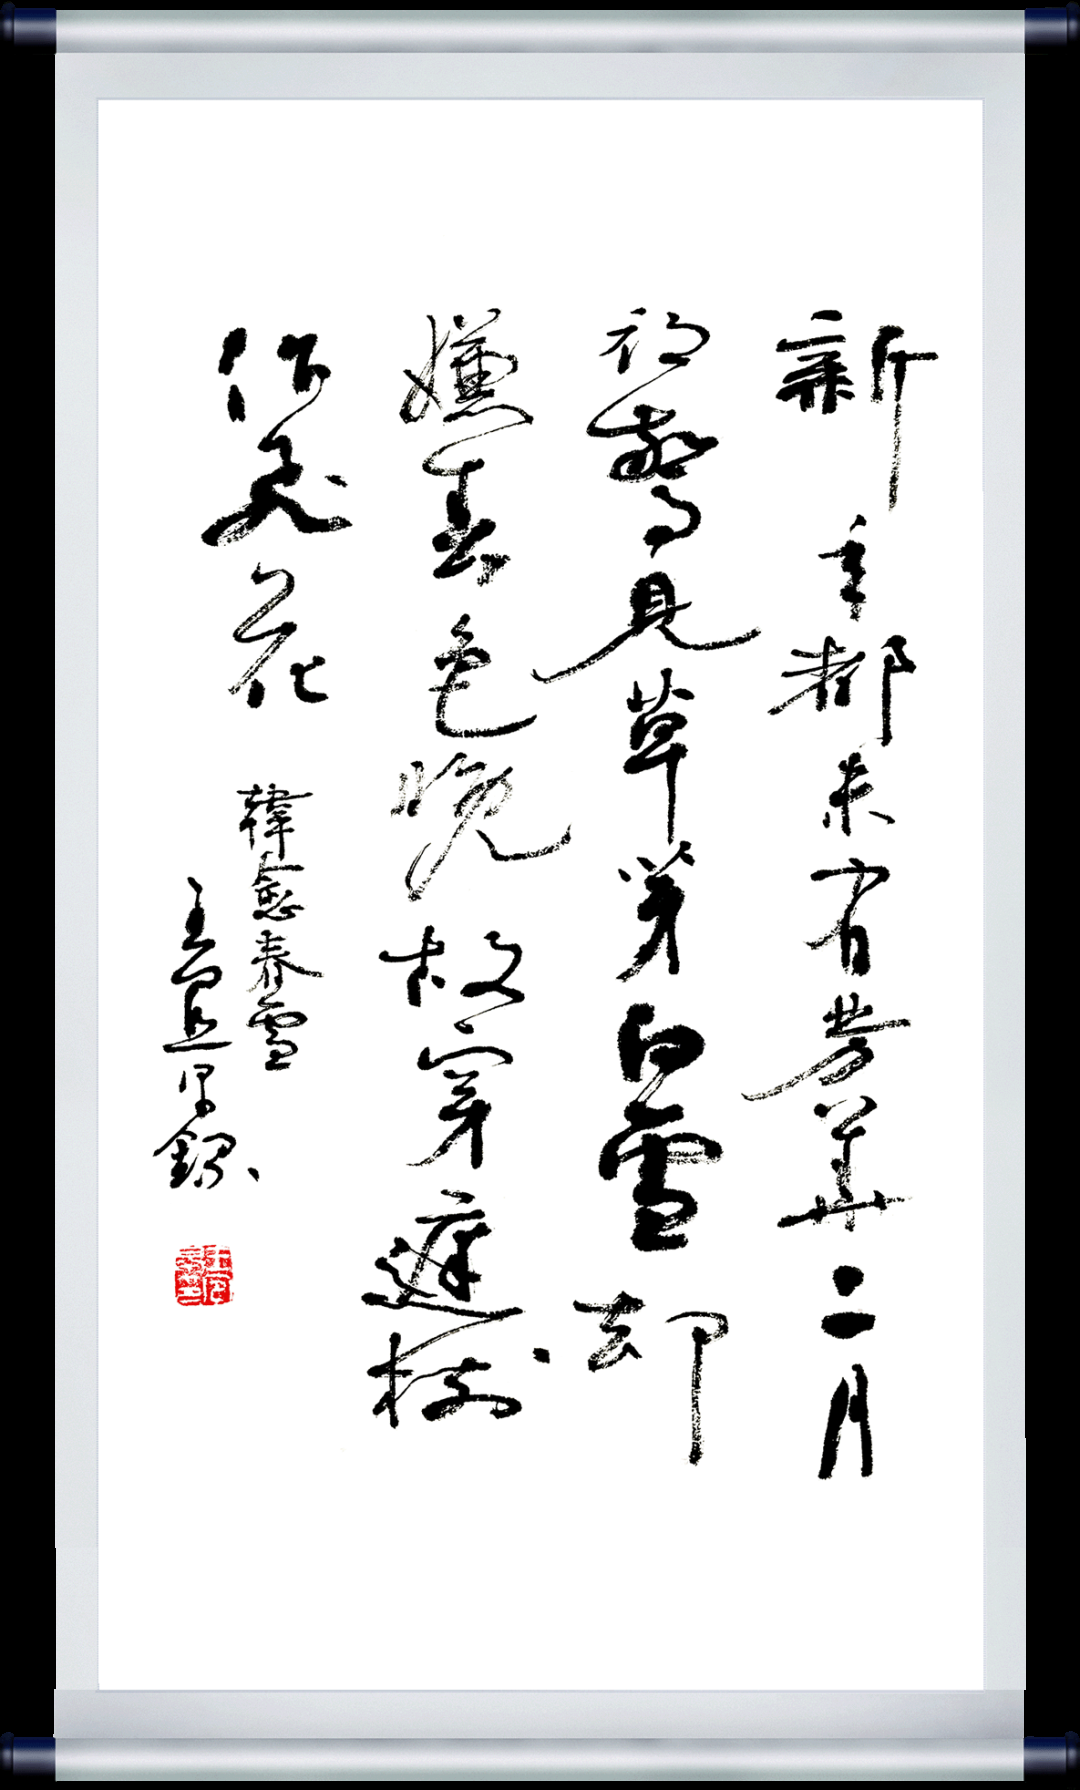 新年都未有芳華二月
初驚見草芽白雪却
嫌春色晚故穿庭樹
作飛花
韓愈春雪
王